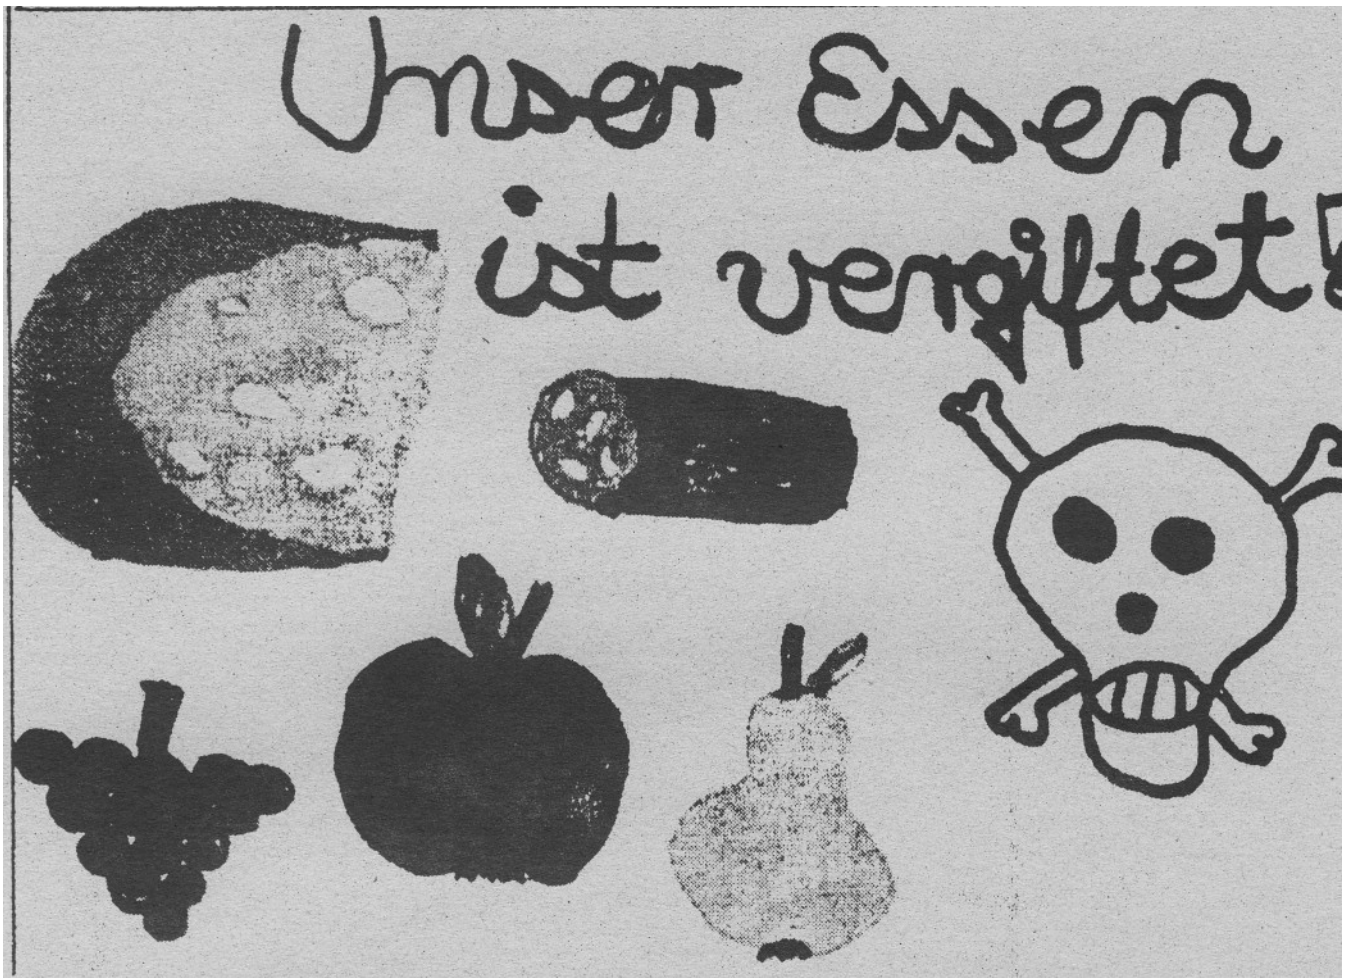 Unser Essen
ist vergiftet!